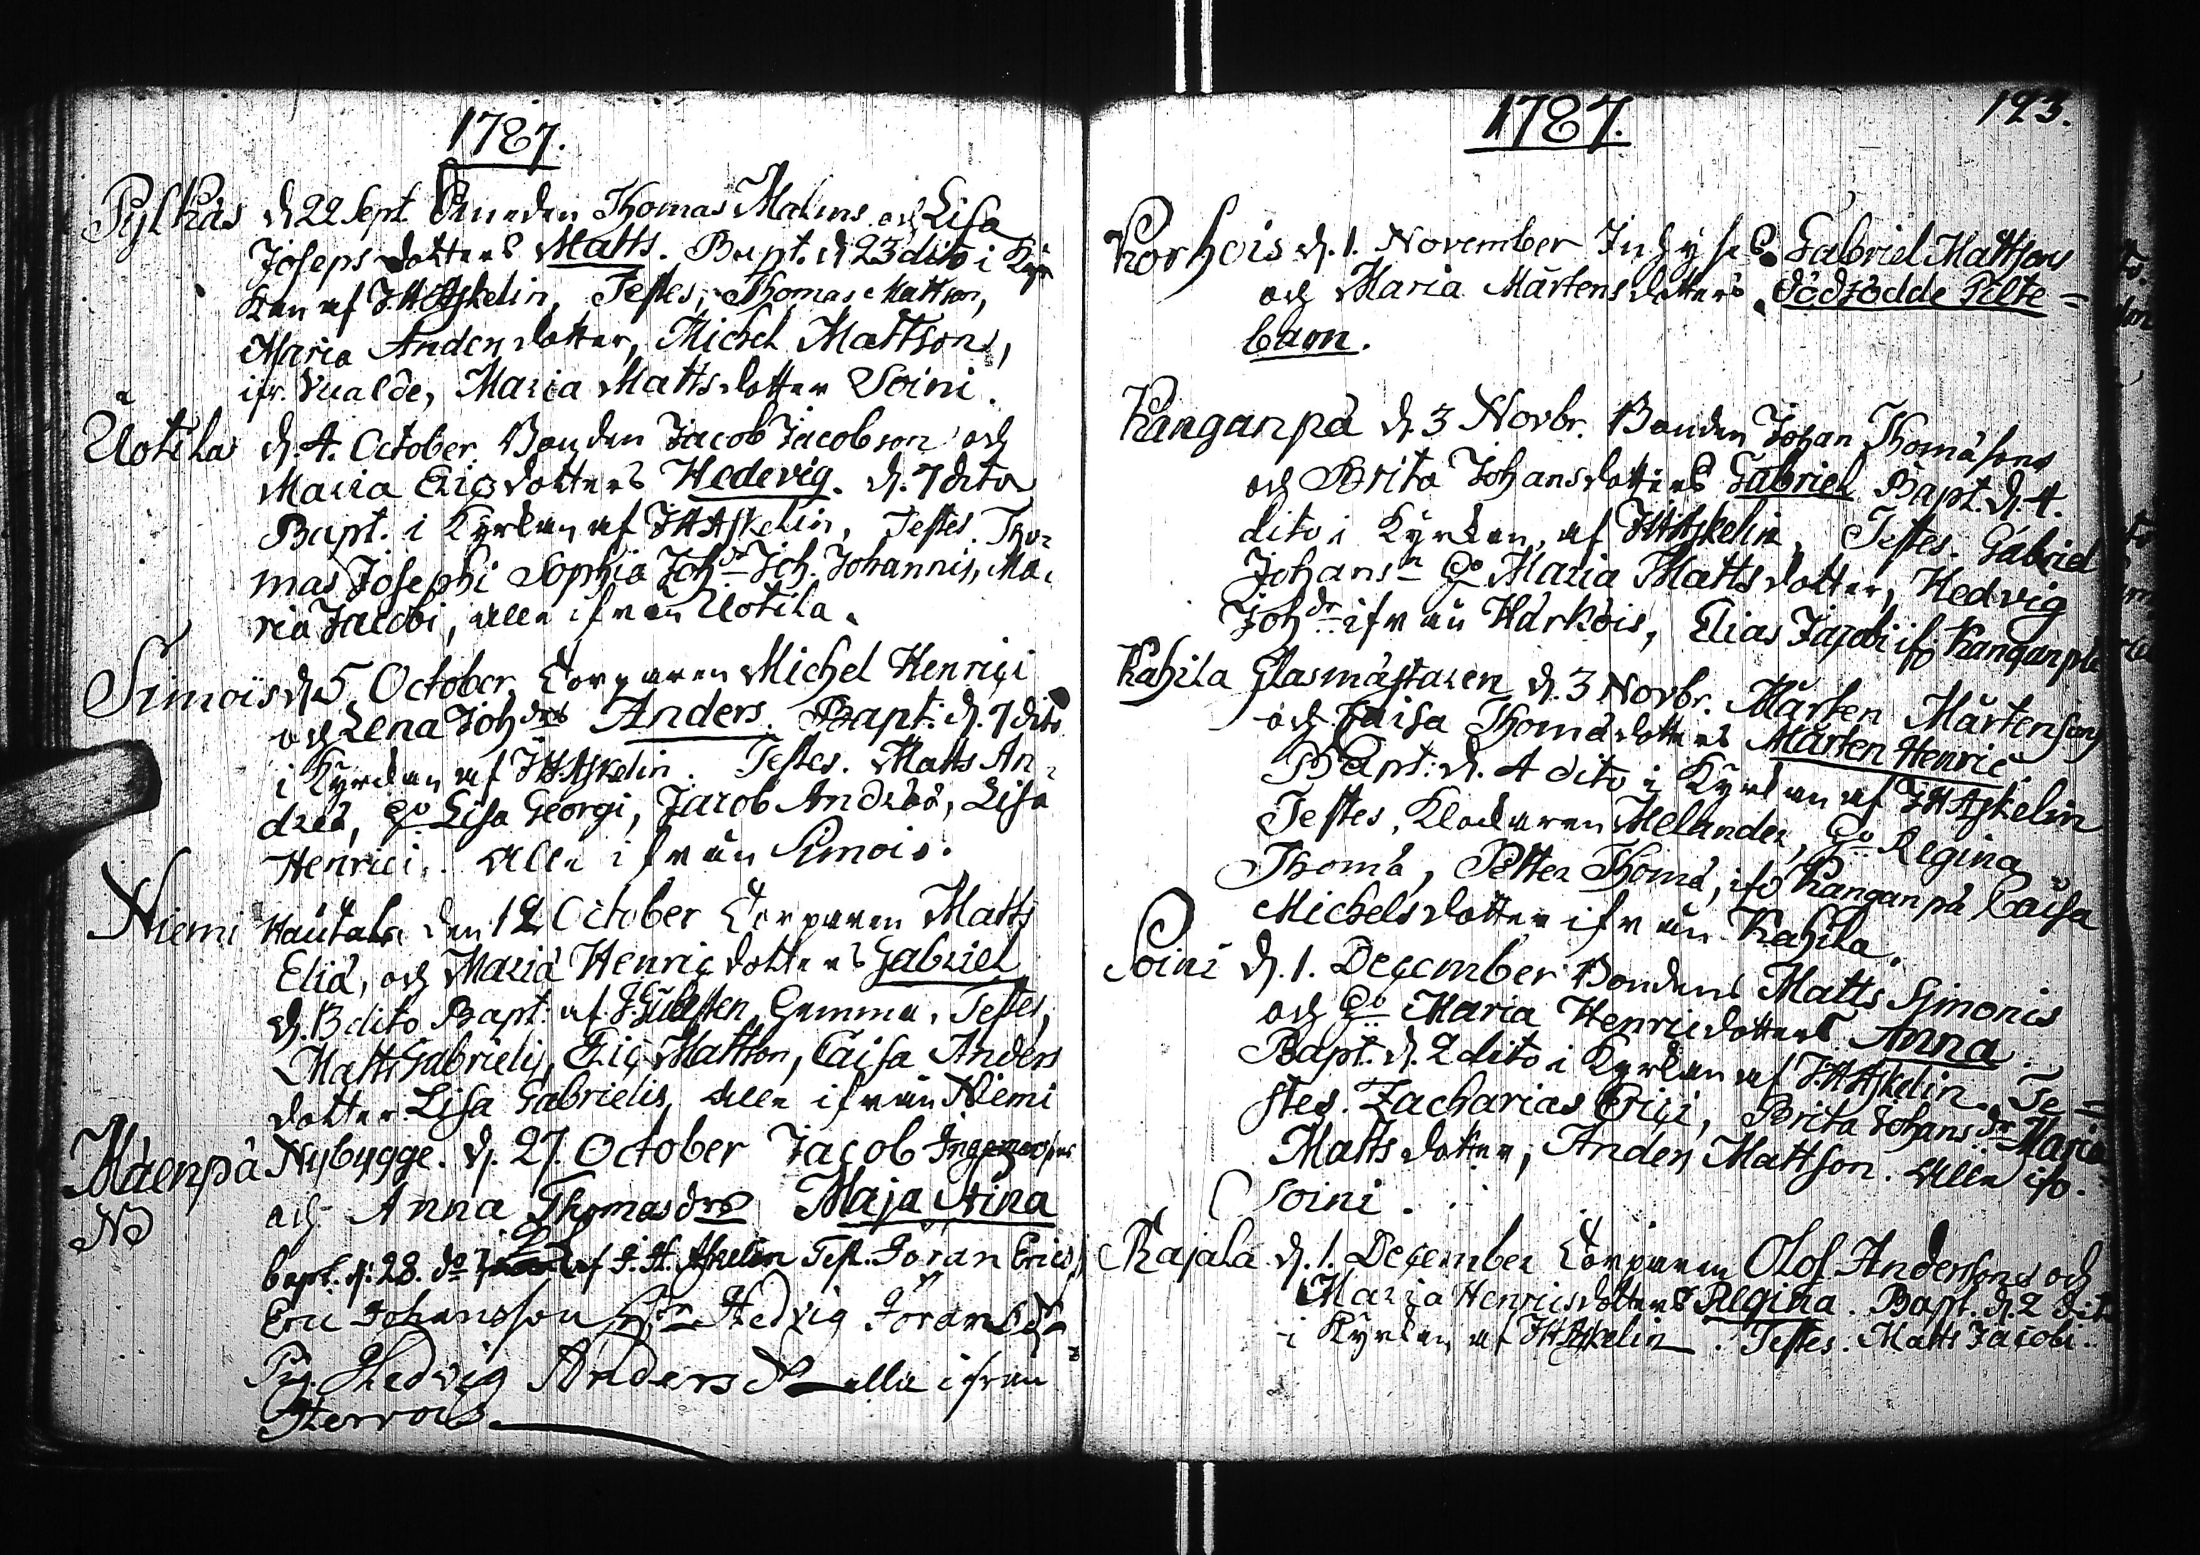 1787.
Pylkäs d. 22 Sept. Bonden Thomas Malms och Lisa
Josepsdotters Matts. Bapt. d. 23 dito i Kyr
kan af JHAskelin, Testes, Thomas Mattson,
Maria Andersdotter, Michel Mattson,
ifr. Maria Mattsdotter Soini.
Uotila d. 4. October. Bonden Jacob Jacobson och
Maria Ericsdotters Hedevig. d. 7 dito
Bapt. i Kyrkan af JHAskelin, Testes. Tho-
mas Josephi Sophia Johdr Joh. Johannis, Ma-
ria Jacobi, alla ifrån Uotila.
Simois d. 5 October, Torparen Michel Henrici
och Lena Johdrs Anders. Bapt. d. 7 dito
i Kyrkan af JHAskelin. Testes. Matts An-
dreä, Lisa Georgi, Jacob Andreä, Lisa
Henrici. alla ifrån Simois.
Niemi Hautala den 12 October Torparen Matts
Eliä, och Maria Henricsdotters Gabriel
d. 13 dito Bapt. af Testes,
Matts Gabrielis, Eric Mattson, Caisa Anders
dotter Lisa Gabrielis, alla ifrån Niemi
Mäenpä Nybygge. d. 27. October Jacob
och Anna Thomasdrs Maja Stina
NB
bapt. d. 28. do af J. H. Askelin Test. Göran Erics,
Eric Johansson Hedvig Görans dr
Pig. Hedvig Anders dr alla ifrån
Herrois.
1787. 193.
Korhois d. 1. November Gabriel Mattsons
och Maria Mårtensdotters dödfödde Pilte=
barn.
Kanganpä d. 3 Novbr. Bonden Johan Thomäsons
och Brita Johansdotters Gabriel Bapt. d. 4.
dito i Kyrkan, af JHAskelin, Testes. Gabriel
Johansn Maria Mattsdotter, Hedvig
Johdr ifrån Härköis, Elias Jacobi ifr. Kanganpä
Kahila Glasmästaren d. 3 Novbr. Mårten Mårtensons
och Caisa Thomädotters Mårten Henric.
Bapt. d. 4 dito i Kyrkan af JHAskelin
Testes, Klockaren Melander, Regina
Thomä, Petter Thomä, ifr. Kanganpä Caisa
Michelsdotter ifrån Kahila.
Soini d. 1. December Bondens Matts Simonis
och Maria Henricsdotters Anna.
Bapt. d. 2 dito i Kyrkan af JHAskelin. Te=
stes. Zacharias Erici, Brita Johansdr Maria
Mattsdotter, Anders Mattson. Alla ifr.
Soini.
Rajala d. 1. December Torparen Olof Andersons och
Maria Henricsdotters Regina. Bapt. d. 2 dit
i Kyrkan af JHAskelin. Testes. Matts Jacobi.